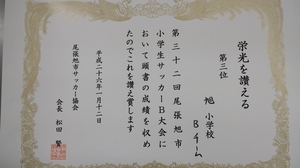 栄光を讃える
第三位
旭小学校
Bチーム
第三十二回尾張旭市
小学生サッカーB大会に
おいて頭書の成績を収め
たのでこれを讃え賞します
平成二十六年一月十二日
尾張旭市サッカー協会
会長 松田